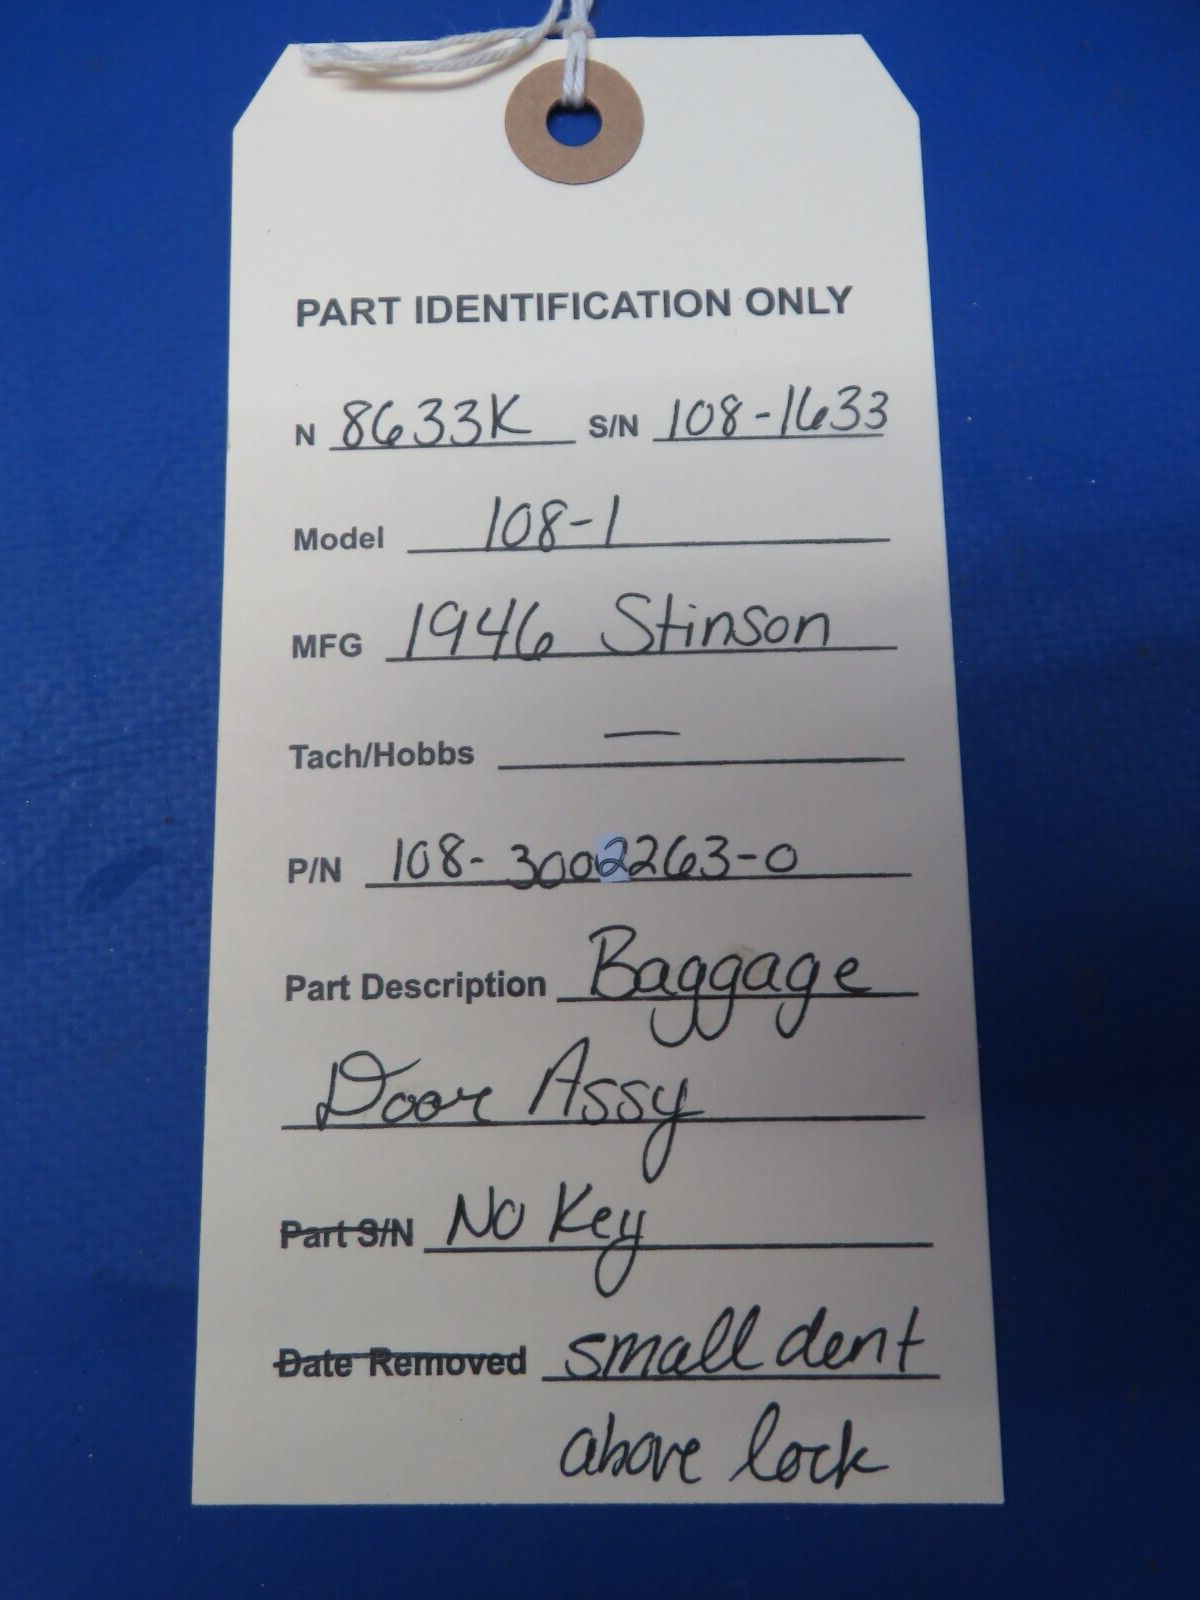 PART IDENTIFICATION ONLY
N 8633K S/N 108-1633
Model 108-1
MFG 1946 Stinson
Tach/Hobbs —
P/N 108-3002263-0
Part Description Baggage
Door Assy
Part S/N No Key
Date Removed small dent
above lock